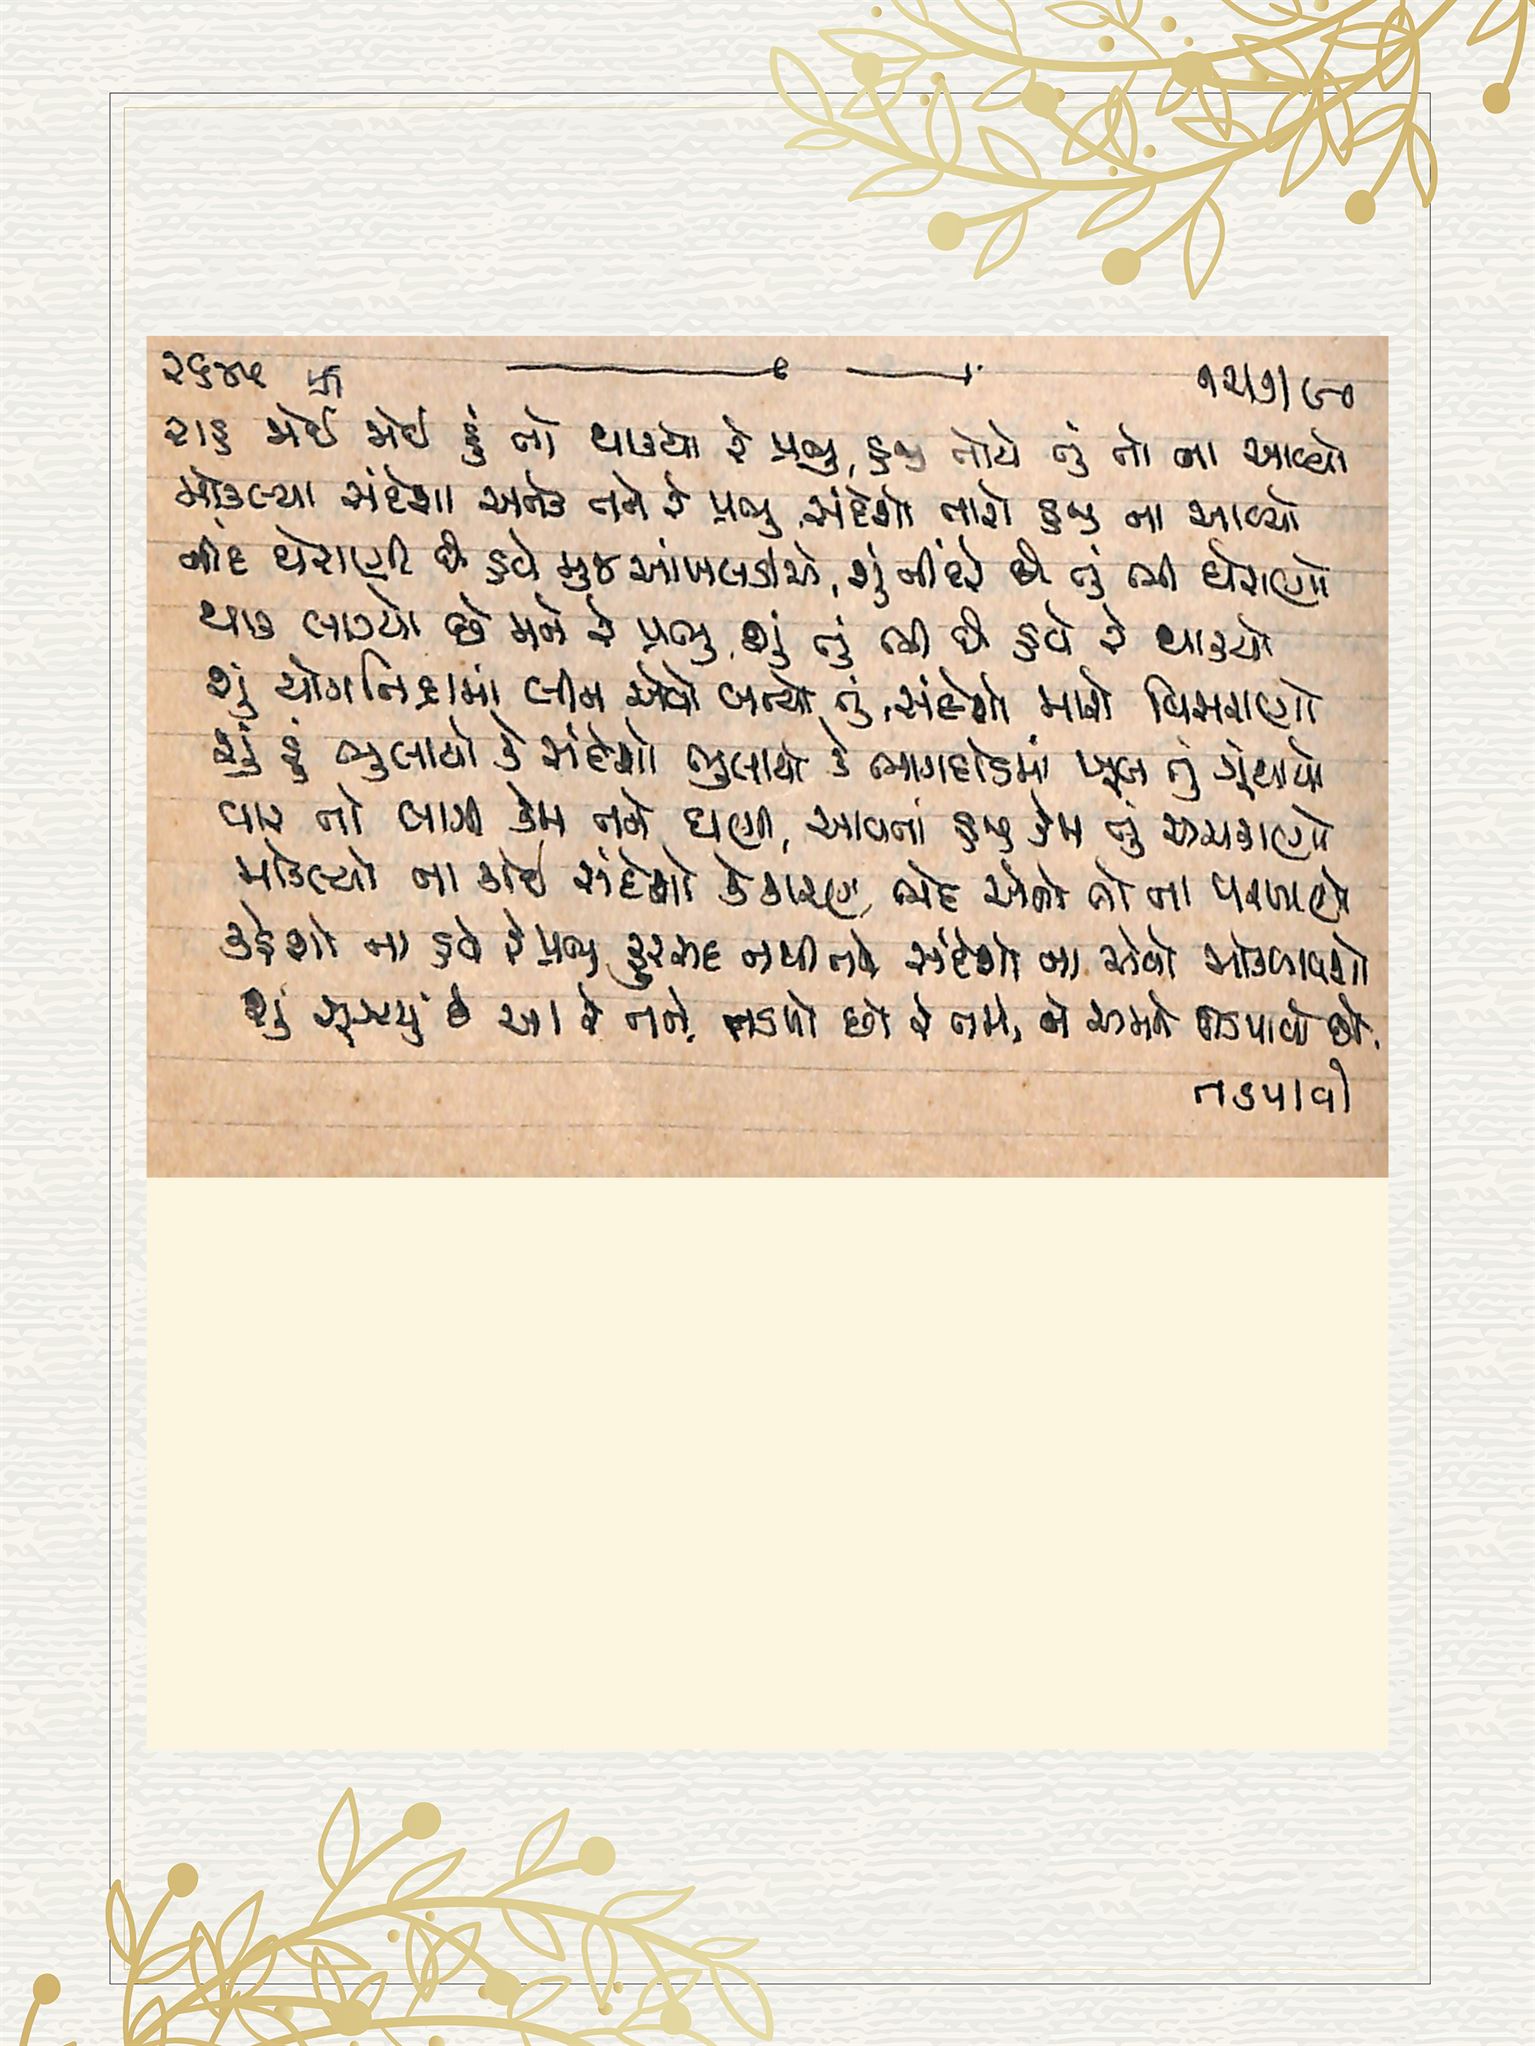 ૨૬૪૫ 卐 ૧૨/૭/૯૦
રાહ જોઈ જોઈ હું તો થાક્યો રે પ્રભુ, હજુ તોયે તું તો ના આવ્યો
મોકલ્યા સંદેશા અનેક તને રે પ્રભુ, સંદેશો તારો હજુ ના આવ્યો
નીંદ ઘેરાણી છે હવે મુજ આંખલડીએ, શું નીંદરે છે તું ભી ઘેરાણો
થાક લાગ્યો છે મને રે પ્રભુ, શું તું ભી છે હવે રે થાક્યો
શું યોગનિદ્રામાં લીન એવો બન્યો તું, સંદેશો મારો વિસરાણો
શું હું ભુલાયો કે સંદેશો ભુલાયો કે ભાગદોડમાં ખૂબ તું ગૂંથાયો
વાર તો લાગી કેમ તને ઘણી, આવતાં હજુ કેમ તું અચકાણો
મોકલ્યો ના કોઈ સંદેશો કે કારણ, ભેદ એનો તો ના પરખાણો
કહેશો ના હવે રે પ્રભુ ફુરસદ નથી તને સંદેશો ના એવો મોકલાવશો
શું સૂઝ્યું છે આ રે તને, તડપો છો રે તમે, ને અમને તડપાવો છો.
તડપાવો